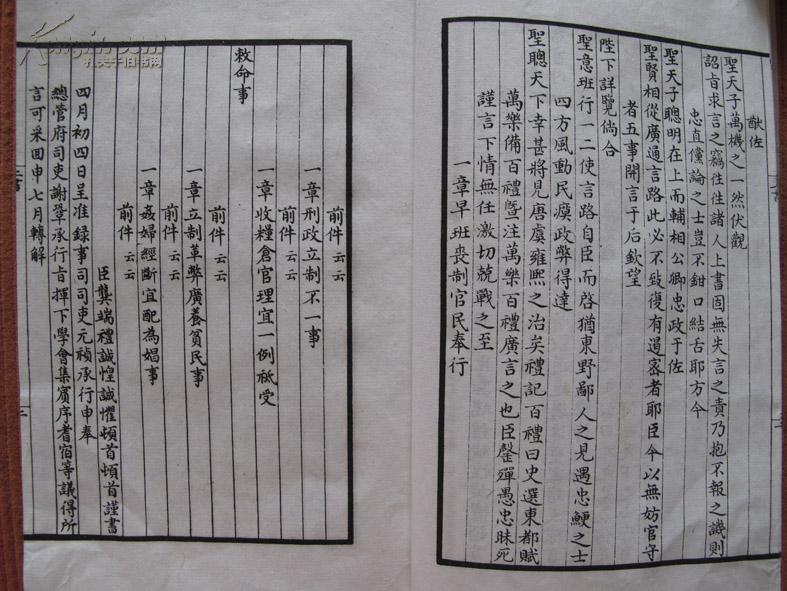 猷佐
聖天子萬機之一然伏觀
詔旨求言之竊往往諸人上書固無失言之責乃抱不報之譏則
忠直儻論之士豈不鉗口結舌耶方今
聖天子聰明在上而輔相公卿忠政于佐
聖賢相從廣通言路此必不致復有遏密者耶臣今以無妨官守
者五事開言于后欽望
陛下詳覽倘合
聖意班行一二使言路自臣而啓猶東野鄙人之見遇忠鯁之士
四方風動民瘼政弊得達
聖聰天下幸甚將見唐虞雍熙之治矣禮記百禮曰史選東都賦
萬樂備百禮暨注萬樂百禮廣言之也臣罄殫愚忠昧死
謹言下情無任激切兢戰之至
一章早班喪制官民奉行
前件云云
一章刑政立制不一事
前件云云
一章收糧倉官理宜一例祗受
敕命事
前件云云
一章立制革弊廣養貧民事
前件云云
一章姦婦經斷宜配為娼事
前件云云
臣龔端禮誠惶誠懼頓首頓首謹書
四月初四日呈准録事司司吏元禎承行申奉
總管府司吏謝鞏承行旨揮下學會集賓序耆宿等議得所
言可采回申七月轉解
孔夫子旧书网